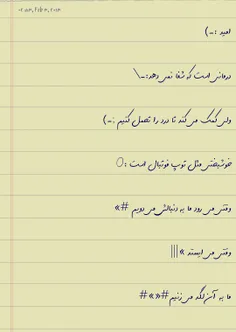 امید :_)
درمانی است که شفا نمی دهد:_\
ولی کمک می کند تا درد را تحمل کنیم :_)
خوشبختی مثل توپ فوتبال است :O
وقتی می رود ما به دنبالش می دویم #»
وقتی می ایستد »|||
ما به آن لگد می زنیم#«»#